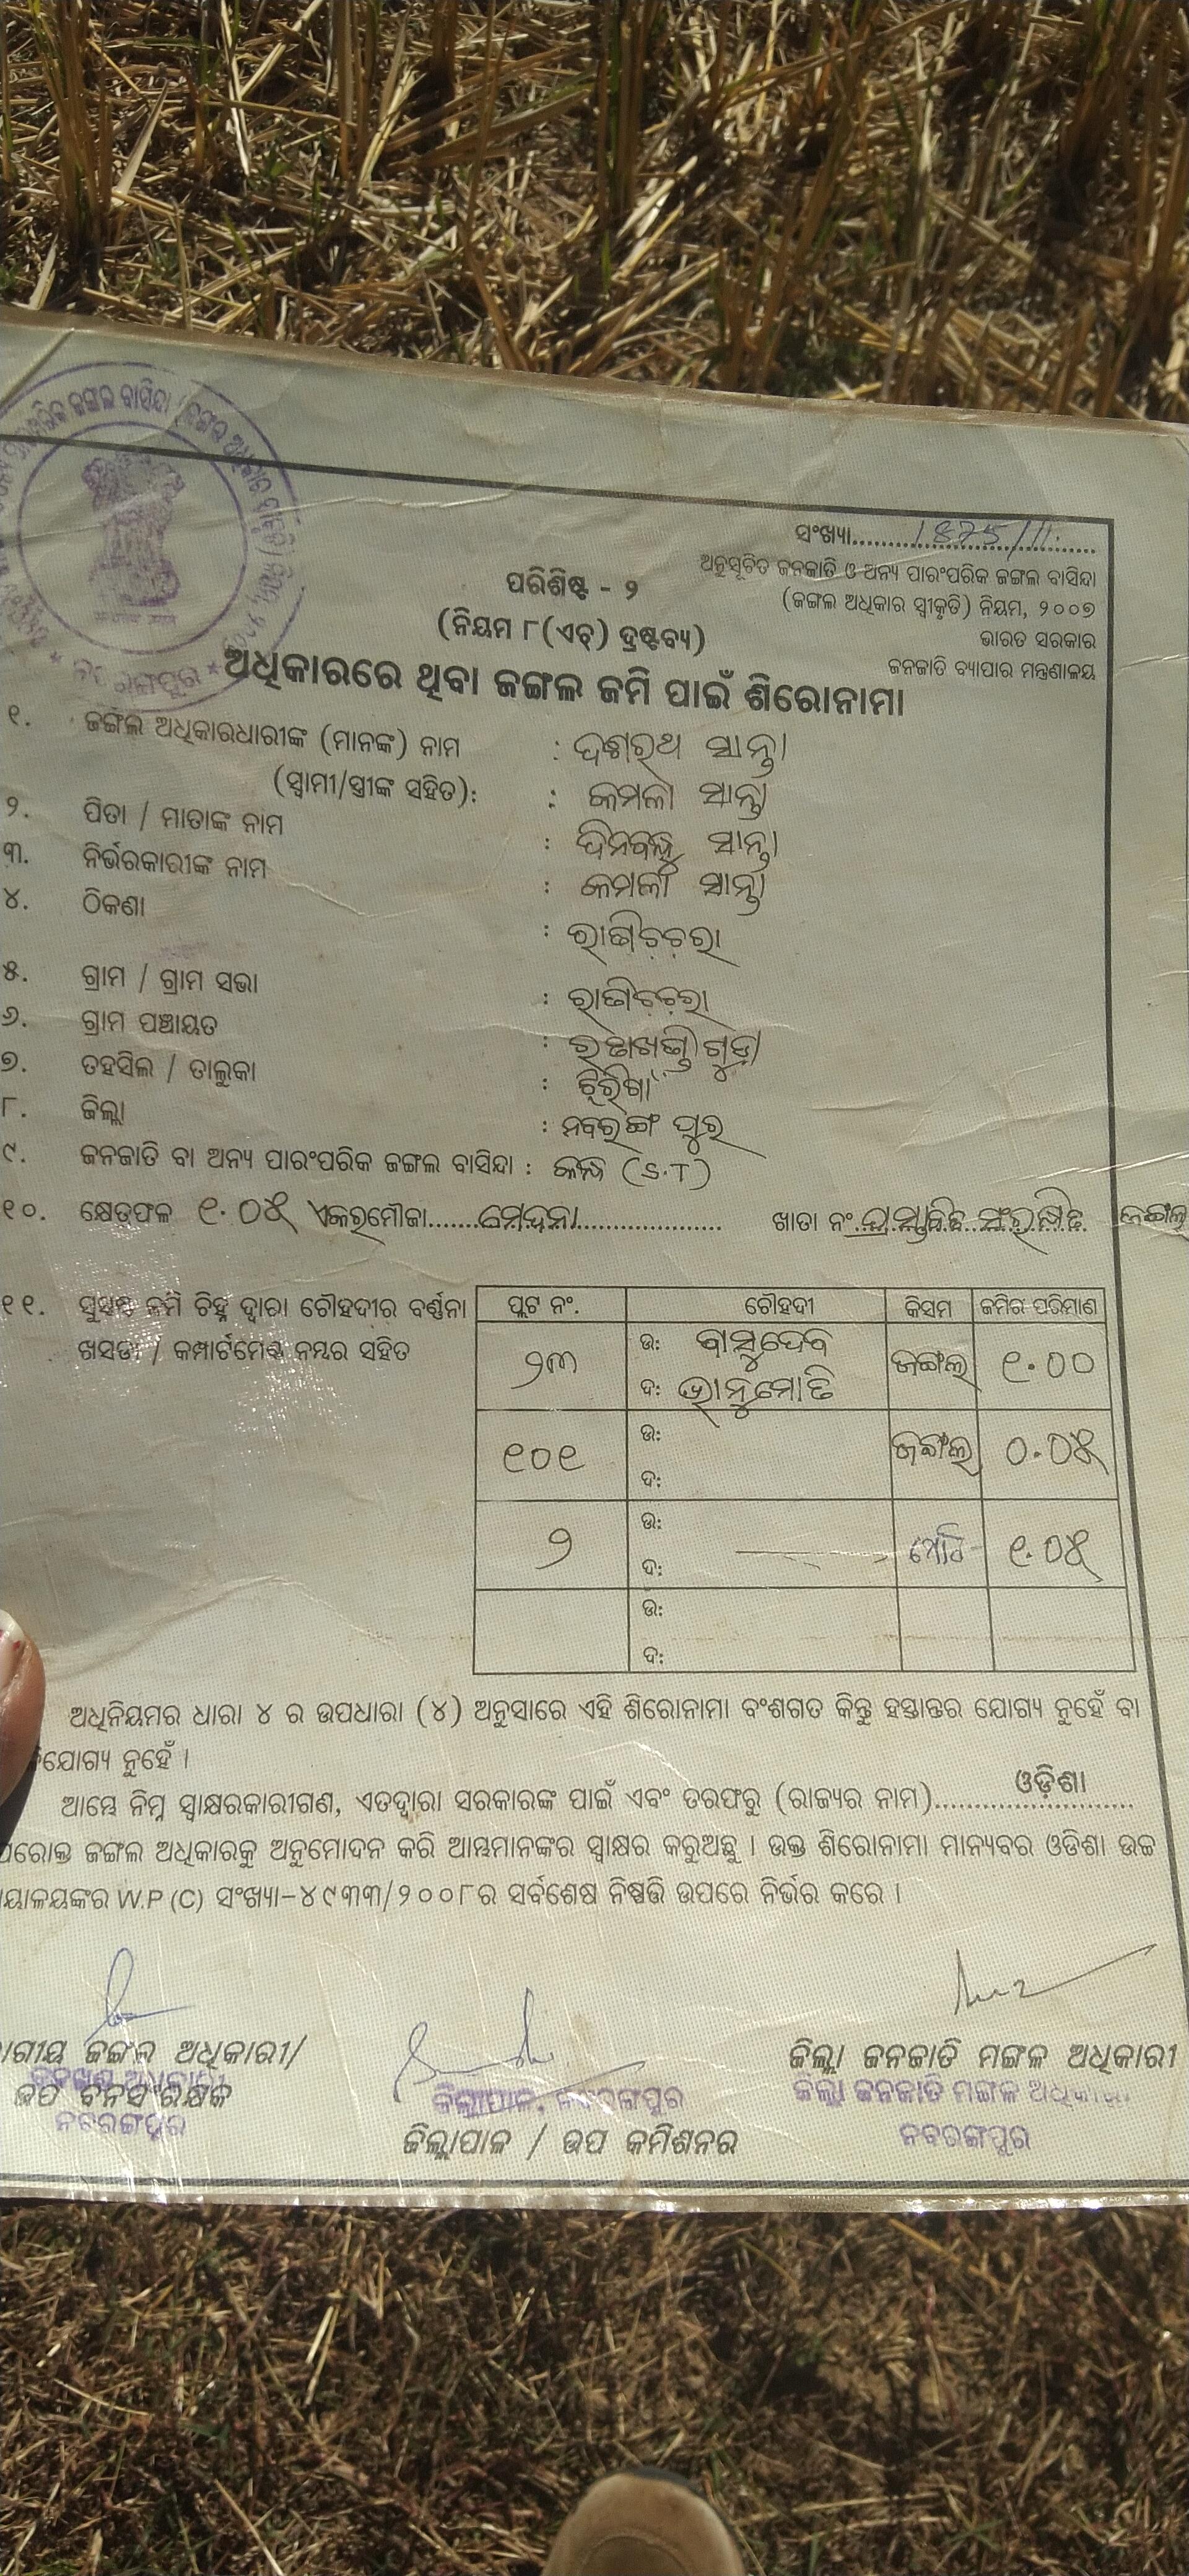 ଜଙ୍ଗଲ ବାସିନ୍ଦା (ଜଙ୍ଗଲ ଅଧିକାର
ସଂଖ୍ୟା..........1875/11.....
ଅନୁସୂଚିତ ଜନଜାତି ଓ ଅନ୍ୟ ପାରଂପରିକ ଜଙ୍ଗଲ ବାସିନ୍ଦା
(ଜଙ୍ଗଲ ଅଧିକାର ସ୍ୱୀକୃତି) ନିୟମ, ୨୦୦୭
ଭାରତ ସରକାର
ଜନଜାତି ବ୍ୟାପାର ମନ୍ତ୍ରଣାଳୟ
ପରିଶିଷ୍ଟ - ୨
(ନିୟମ ୮(ଏଚ୍) ଦ୍ରଷ୍ଟବ୍ୟ)
ଅଧିକାରରେ ଥିବା ଜଙ୍ଗଲ ଜମି ପାଇଁ ଶିରୋନାମା
୧. ଜଙ୍ଗଲ ଅଧିକାରଧାରୀଙ୍କ (ମାନଙ୍କ) ନାମ : ଦଶରଥ ସାନ୍ତା
(ସ୍ୱାମୀ/ସ୍ତ୍ରୀଙ୍କ ସହିତ): : କମଳା ସାନ୍ତା
୨. ପିତା / ମାତାଙ୍କ ନାମ : ଦିନବନ୍ଧୁ ସାନ୍ତା
୩. ନିର୍ଭରକାରୀଙ୍କ ନାମ : କମଳା ସାନ୍ତା
୪. ଠିକଣା :
୫. ଗ୍ରାମ / ଗ୍ରାମ ସଭା :
୬. ଗ୍ରାମ ପଞ୍ଚାୟତ :
୭. ତହସିଲ / ତାଲୁକା : ଝରିଗାଁ
୮. ଜିଲ୍ଲା : ନବରଙ୍ଗପୁର
୯. ଜନଜାତି ବା ଅନ୍ୟ ପାରଂପରିକ ଜଙ୍ଗଲ ବାସିନ୍ଦା : କନ୍ଧ (S.T)
୧୦. କ୍ଷେତ୍ରଫଳ ୧.୦୪ ଏକର ମୌଜା.................. ଖାତା ନଂ. ପ୍ରସ୍ତାବିତ ସଂରକ୍ଷିତ ଜଙ୍ଗଲ
୧୧. ସୁସ୍ପଷ୍ଟ ଜମି ଚିହ୍ନ ଦ୍ୱାରା ଚୌହଦୀର ବର୍ଣ୍ଣନା
ଖସଡା / କମ୍ପାର୍ଟମେଣ୍ଟ ନମ୍ବର ସହିତ
ପ୍ଲଟ ନଂ. ଚୌହଦୀ କିସମ ଜମିର ପରିମାଣ
୨୩ ଉ: ବାସୁଦେବ ଜଙ୍ଗଲ ୧.୦୦
ଦ: ଭାନୁମୋତି
୧୦୧ ଉ: ଜଙ୍ଗଲ ୦.୦୪
ଦ:
୨ ଉ: ମୋଟ ୧.୦୪
ଦ:
ଉ:
ଦ:
ଅଧିନିୟମର ଧାରା ୪ ର ଉପଧାରା (୪) ଅନୁସାରେ ଏହି ଶିରୋନାମା ବଂଶଗତ କିନ୍ତୁ ହସ୍ତାନ୍ତର ଯୋଗ୍ୟ ନୁହେଁ ବା
ଯୋଗ୍ୟ ନୁହେଁ ।
ଆମ୍ଭେ ନିମ୍ନ ସ୍ୱାକ୍ଷରକାରୀଗଣ, ଏତଦ୍ୱାରା ସରକାରଙ୍କ ପାଇଁ ଏବଂ ତରଫରୁ (ରାଜ୍ୟର ନାମ)..........ଓଡ଼ିଶା..........
ପରୋକ୍ତ ଜଙ୍ଗଲ ଅଧିକାରକୁ ଅନୁମୋଦନ କରି ଆମ୍ଭମାନଙ୍କର ସ୍ୱାକ୍ଷର କରୁଅଛୁ । ଉକ୍ତ ଶିରୋନାମା ମାନ୍ୟବର ଓଡିଶା ଉଚ୍ଚ
ୟାଳୟଙ୍କର W.P.(C) ସଂଖ୍ୟା-୪୯୩୩/୨୦୦୮ର ସର୍ବଶେଷ ନିଷ୍ପତ୍ତି ଉପରେ ନିର୍ଭର କରେ ।
ଗୀୟ ଜଙ୍ଗଲ ଅଧିକାରୀ/
ଉପ ବନସଂରକ୍ଷକ
ନବରଙ୍ଗପୁର
ଜିଲ୍ଲାପାଳ, ନବରଙ୍ଗପୁର
ଜିଲ୍ଲାପାଳ / ଉପ କମିଶନର
ଜିଲ୍ଲା ଜନଜାତି ମଙ୍ଗଳ ଅଧିକାରୀ
ଜିଲ୍ଲା ଜନଜାତି ମଙ୍ଗଳ ଅଧିକାରୀ
ନବରଙ୍ଗପୁର